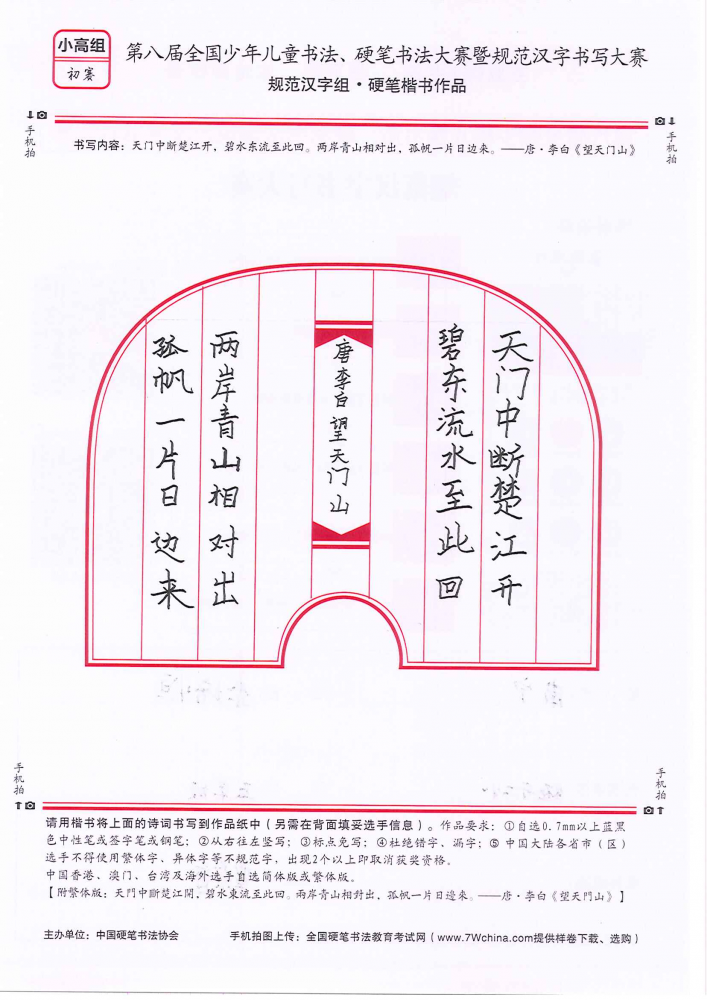 小高组
初赛
第八届全国少年儿童书法、硬笔书法大赛暨规范汉字书写大赛
规范汉字组·硬笔楷书作品
手机拍
手机拍
书写内容：天门中断楚江开，碧水东流至此回。两岸青山相对出，孤帆一片日边来。——唐·李白《望天门山》
天门中断楚江开
碧东流水至此回
唐李白望天门山
两岸青山相对出
孤帆一片日边来
手机拍
手机拍
请用楷书将上面的诗词书写到作品纸中（另需在背面填妥选手信息）。作品要求：①自选0.7mm以上蓝黑
色中性笔或签字笔或钢笔；②从右往左竖写；③标点免写；④杜绝错字、漏字；⑤中国大陆各省市（区）
选手不得使用繁体字、异体字等不规范字，出现2个以上即取消获奖资格。
中国香港、澳门、台湾及海外选手自选简体版或繁体版。
【附繁体版：天門中斷楚江開，碧水東流至此回。兩岸青山相對出，孤帆一片日邊來。——唐·李白《望天門山》】
主办单位：中国硬笔书法协会
手机拍图上传：全国硬笔书法教育考试网（www.7Wchina.com提供样卷下载、选购）